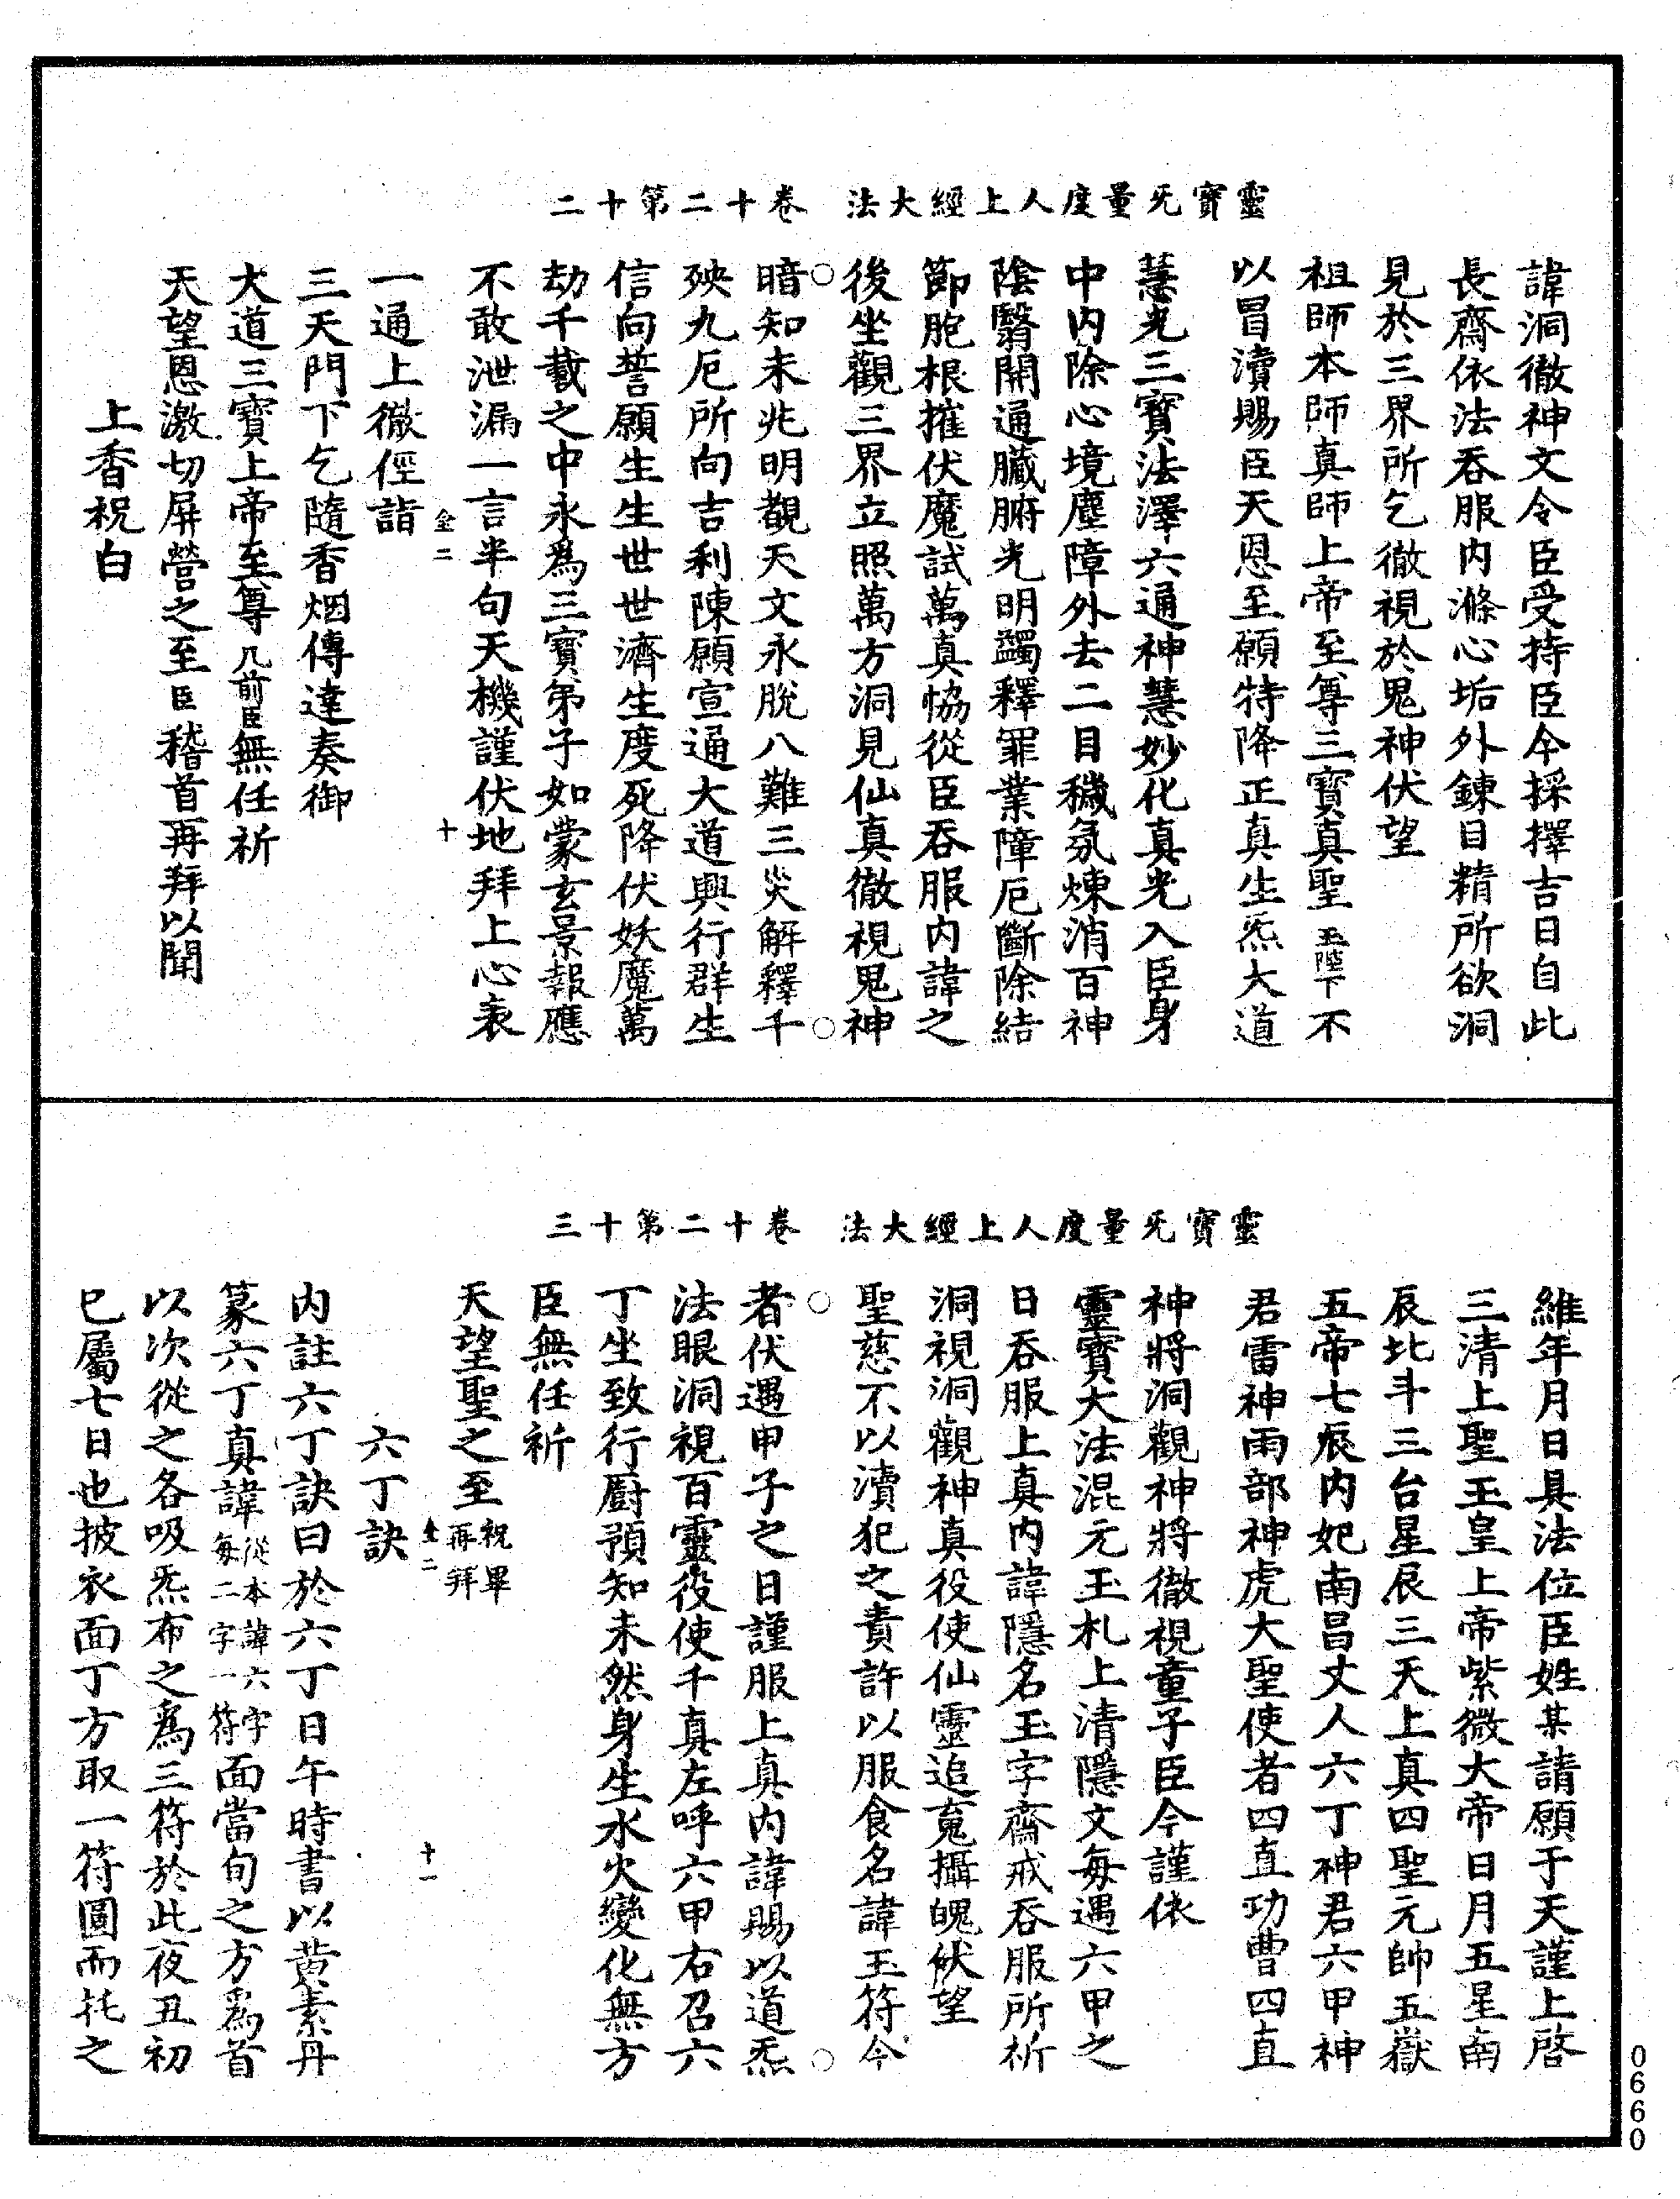 靈寶无量度人上經大法　卷十二第十二
諱洞徹神文令臣受持臣今採擇吉日自此
長齋依法吞服内滌心垢外鍊目精所欲洞
見於三界所乞徹視於鬼神伏望
祖師本師真師上帝至尊三寶真聖玉陛下不
以冒瀆賜臣天恩至願特降正真生炁大道
慧光三寶法澤六通神慧妙化真光入臣身
中内除心境塵障外去二目穢氛煉消百神
陰翳開通臟腑光明蠲釋罪業障厄斷除結
節胞根摧伏魔試萬真恊從臣吞服内諱之
後坐觀三界立照萬方洞見仙真徹視鬼神
○暗知未兆明覩天文永脫八難三災解釋千○
殃九厄所向吉利陳願宣通大道興行群生
信向誓願生生世世濟生度死降伏妖魔萬
劫千載之中永爲三寶弟子如蒙玄景報應
不敢泄漏一言半句天機謹伏地拜上心表
全二　十
一通上徹徑詣
三天門下乞隨香烟傳達奏御
大道三寶上帝至尊几前臣無任祈
天望恩激切屏營之至臣稽首再拜以聞
上香祝白
靈寶无量度人上經大法　卷十二第十三
維年月日具法位臣姓某請願于天謹上啓
三清上聖玉皇上帝紫微大帝日月五星南
辰北斗三台星辰三天上真四聖元帥五嶽
五帝七辰内妃南昌丈人六丁神君六甲神
君雷神雨部神虎大聖使者四直功曹四直
神將洞觀神將徹視童子臣今謹依
靈寶大法混元玉札上清隱文每遇六甲之
日吞服上真内諱隱名玉字齋戒吞服所祈
洞視洞觀神真役使仙靈追寃攝魄伏望
聖慈不以瀆犯之責許以服食名諱玉符今
○者伏遇甲子之日謹服上真内諱賜以道炁○
法眼洞視百靈役使千真左呼六甲右召六
丁坐致行厨預知未然身生水火變化無方
臣無任祈
天望聖之至祝畢再拜
全二　十一
六丁訣
内註六丁訣曰於六丁日午時書以黄素丹
篆六丁真諱從本諱六字每二字一符面當旬之方爲首
以次從之各吸炁布之爲三符於此夜丑初
巳屬七日也披衣面丁方取一符圖而托之
0660